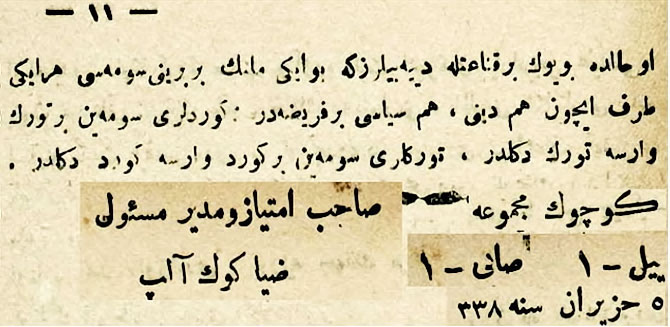 — ١١ —
او حالده بویوك بر قناعتله دیه‌بیلرز كه بو ایكی ملتك بربرینی سومه‌سی هر ایكی
طرف ایچون هم دینی ، هم سیاسی بر فریضه‌در : كوردلری سومه‌ین بر تورك
وارسه تورك دكلدر ، توركلری سومه‌ین بر كورد وارسه كورد دكلدر .
كوچوك مجموعه
صاحب امتیاز و مدیر مسئول
ضیا كوك آلپ
ییل – ١ صانی – ١
٥ حزیران سنه ٣٣٨